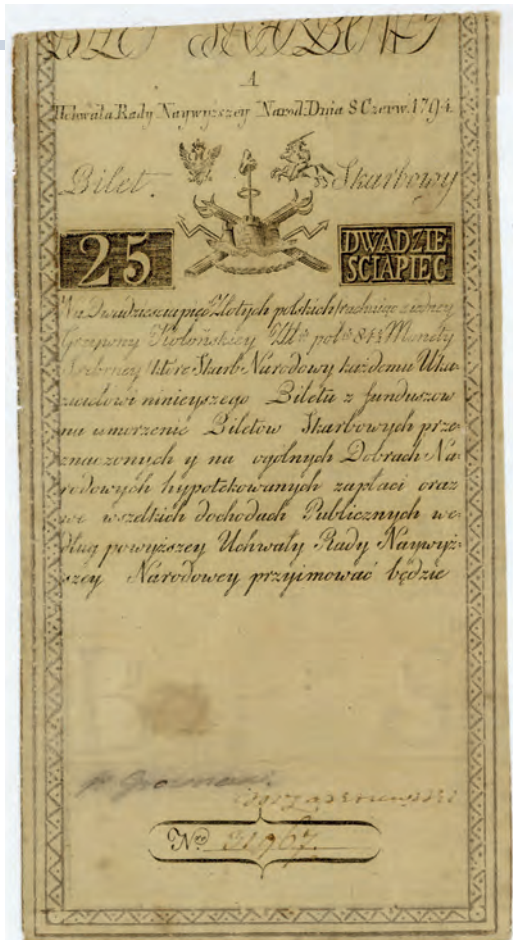 BILET SKARBOWY
A
Uchwała Rady Naywyzszey Narod. Dnia 8 Czerw. 1794.
Bilet. Skarbowy
25 DWADZIE
SCIAPIEC
Na Dwadziesciapięć Złotych polskich rachuiąc z iedney
Grzywny Kolońskiey Złt: pol: 84½ Monety
Srebrney które Skarb Narodowy każdemu Uka-
zicielowi ninieyszego Biletu z funduszow
na umorzenie Biletow Skarbowych prze-
znaczonych y na ogólnych Dobrach Na-
rodowych hypotekowanych zapłaci oraz
we wszelkich dochodach Publicznych we-
dług powyższey Uchwały Rady Naywyż-
szey Narodowey przyimować będzie
Nro 31967.